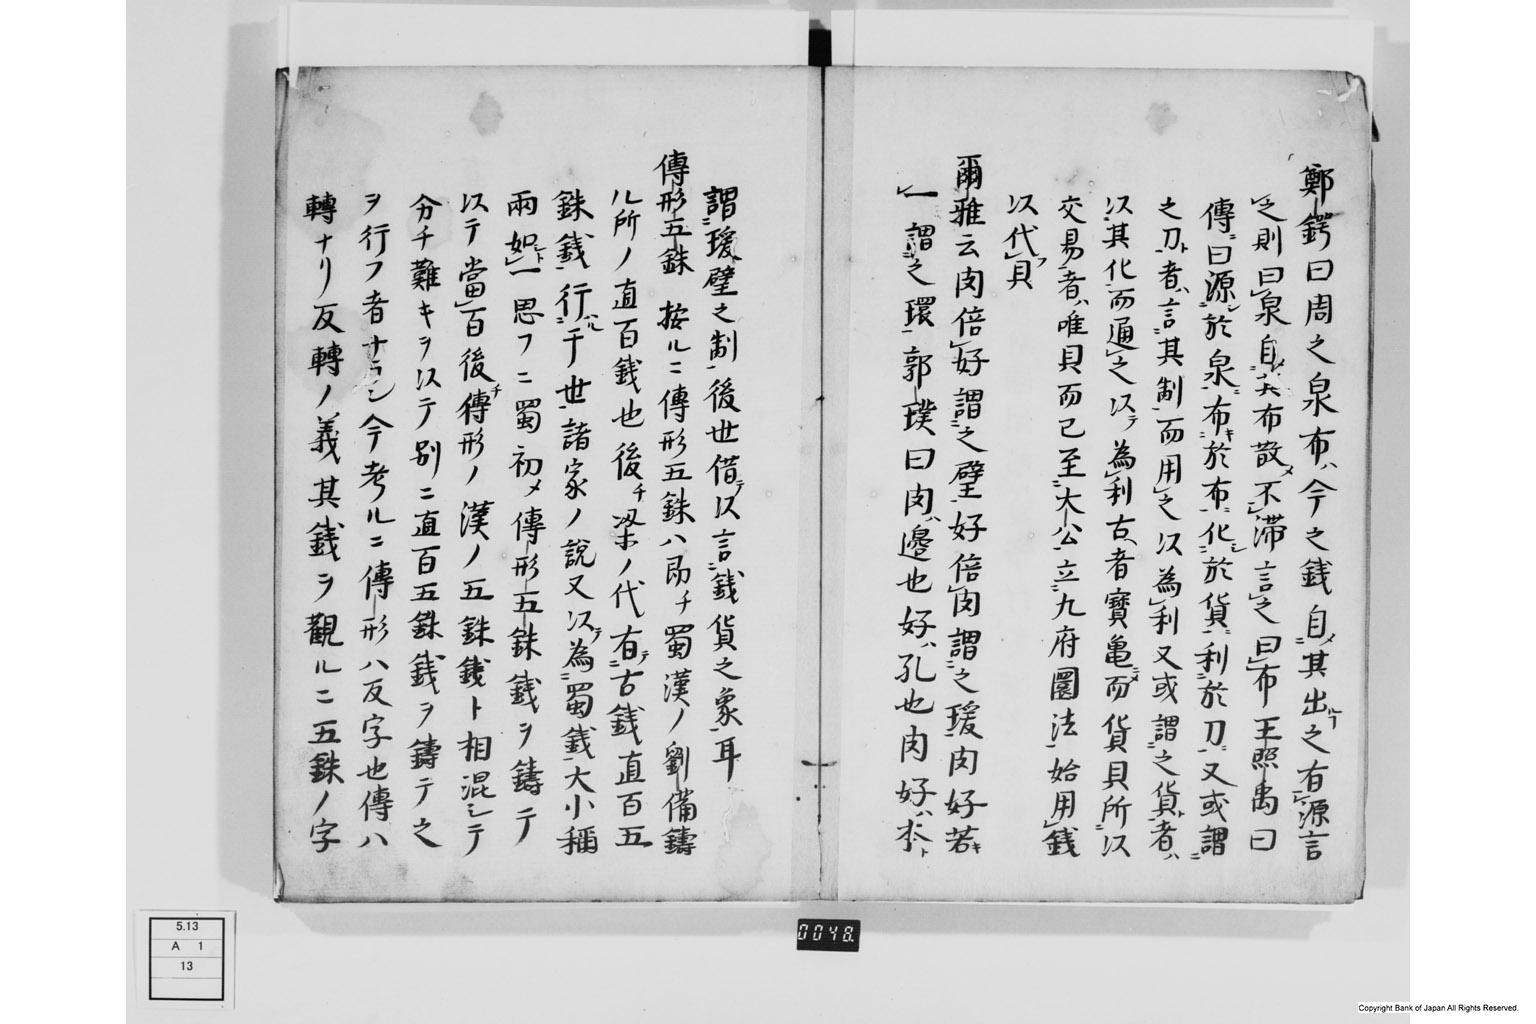 鄭鍔曰周之泉布ハ今之銭自メ其出ルテ之有源言
之則曰泉自メ其布散メ不滞言之曰布王照禹曰
傳曰源於泉布於布化於貨利於刀又或謂
之刀ト者ハ言其制而用之以為利又或謂之貨ト者ハ
以其化而通之以テ為利古者寶亀而貨貝所以
交易者ハ唯貝而已至大公立九府圜法始用銭
以代フ貝
爾雅云肉倍好謂之璧好倍肉謂之瑗肉好若キ
一謂之環郭璞曰肉ハ邊也好ハ孔也肉好ハ本ト
謂瑗璧之制後世借テ以言銭貨之象耳
傳形五銖 按ルニ傳形五銖ハ即チ蜀漢ノ劉備鑄
ル所ノ直百銭也後チ梁ノ代有テ古銭直百五
銖銭行ハル于世諸家ノ説又以テ為蜀銭大小稱
兩如一思フニ蜀初メ傳形五銖銭ヲ鑄テ
以テ當百後チ傳形ノ漢ノ五銖銭ト相混シテ
分チ難キヲ以テ別ニ直百五銖銭ヲ鑄テ之
ヲ行フ者ナラン今考ルニ傳形ハ反字也傳ハ
轉ナリ反轉ノ義其銭ヲ觀ルニ五銖ノ字
5.13
A 1
13
0048.
Copyright Bank of Japan All Rights Reserved.